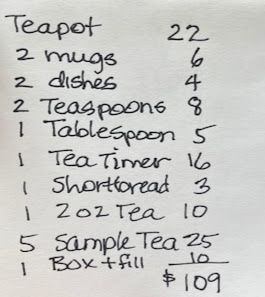 Teapot 22
2 mugs 6
2 dishes 4
2 Teaspoons 8
1 Tablespoon 5
1 Tea Timer 16
1 Shortbread 3
1 2oz Tea 10
5 Sample Tea 25
1 Box + fill 10
$109